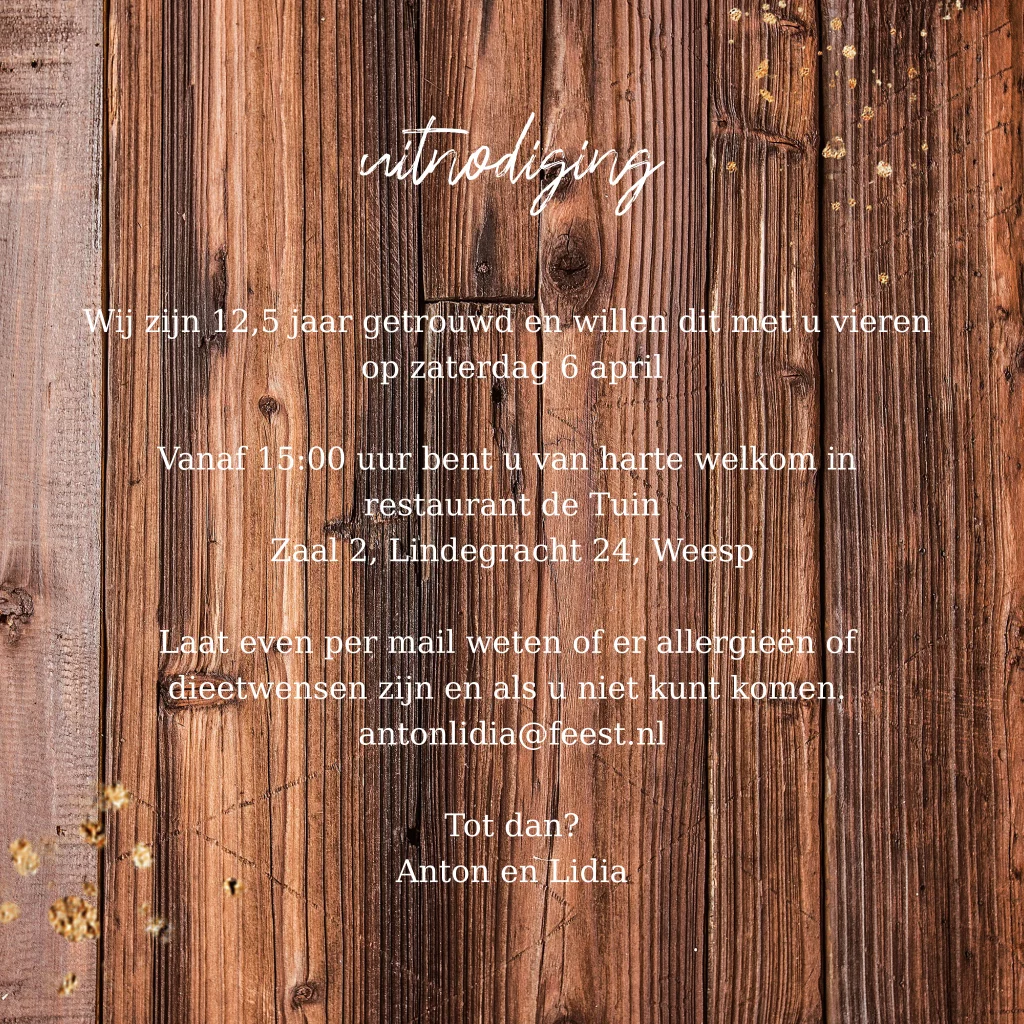 uitnodiging
Wij zijn 12,5 jaar getrouwd en willen dit met u vieren
op zaterdag 6 april
Vanaf 15:00 uur bent u van harte welkom in
restaurant de Tuin
Zaal 2, Lindegracht 24, Weesp
Laat even per mail weten of er allergieën of
dieetwensen zijn en als u niet kunt komen.
antonlidia@feest.nl
Tot dan?
Anton en Lidia